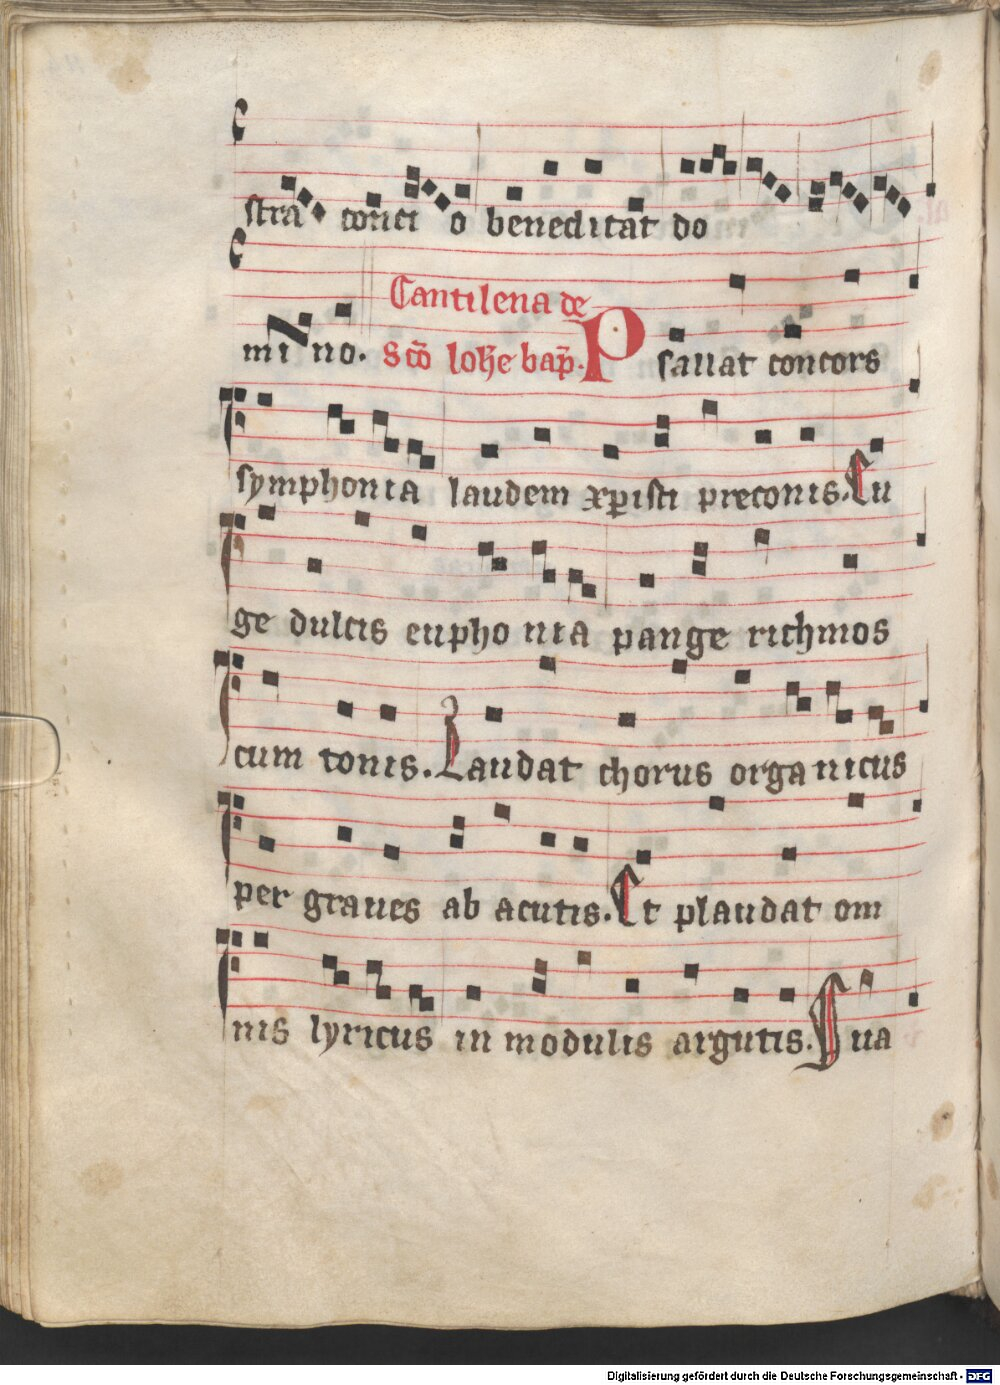 stra conci o benedicat do
mi no. Cantilena de
Sc̄o Ioh̄e bap̄. Psallat concors
symphonia laudem xp̱isti preconis. Eu
ge dulcis eupho nia pange richmos
cum tonis. Laudat chorus organicus
per graues ab acutis. Et plaudat om
nis lyricus in modulis argutis. Qua
Digitalisierung gefördert durch die Deutsche Forschungsgemeinschaft - DFG